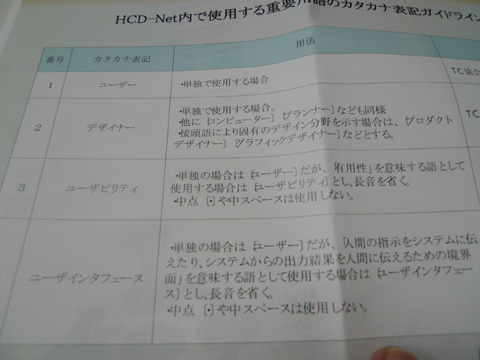 HCD-Net内で使用する重要用語のカタカナ表記ガイドライン
番号 カタカナ表記 用法
1 ユーザー ・単独で使用する場合 TC協会
2 デザイナー ・単独で使用する場合。
・他に［コンピューター］［プランナー］なども同様
・接頭語により固有のデザイン分野を示す場合は、［プロダクト
デザイナー］［グラフィックデザイナー］などとする。
TC
3 ユーザビリティ ・単独の場合は［ユーザー］だが、「有用性」を意味する語として
使用する場合は［ユーザビリティ］とし、長音を省く。
・中点［・］や中スペースは使用しない。
ユーザインタフェース ・単独の場合は［ユーザー］だが、「人間の指示をシステムに伝
えたり、システムからの出力結果を人間に伝えるための境界
面」を意味する語として使用する場合は［ユーザインタフェー
ス］とし、長音を省く。
・中点［・］や中スペースは使用しない。